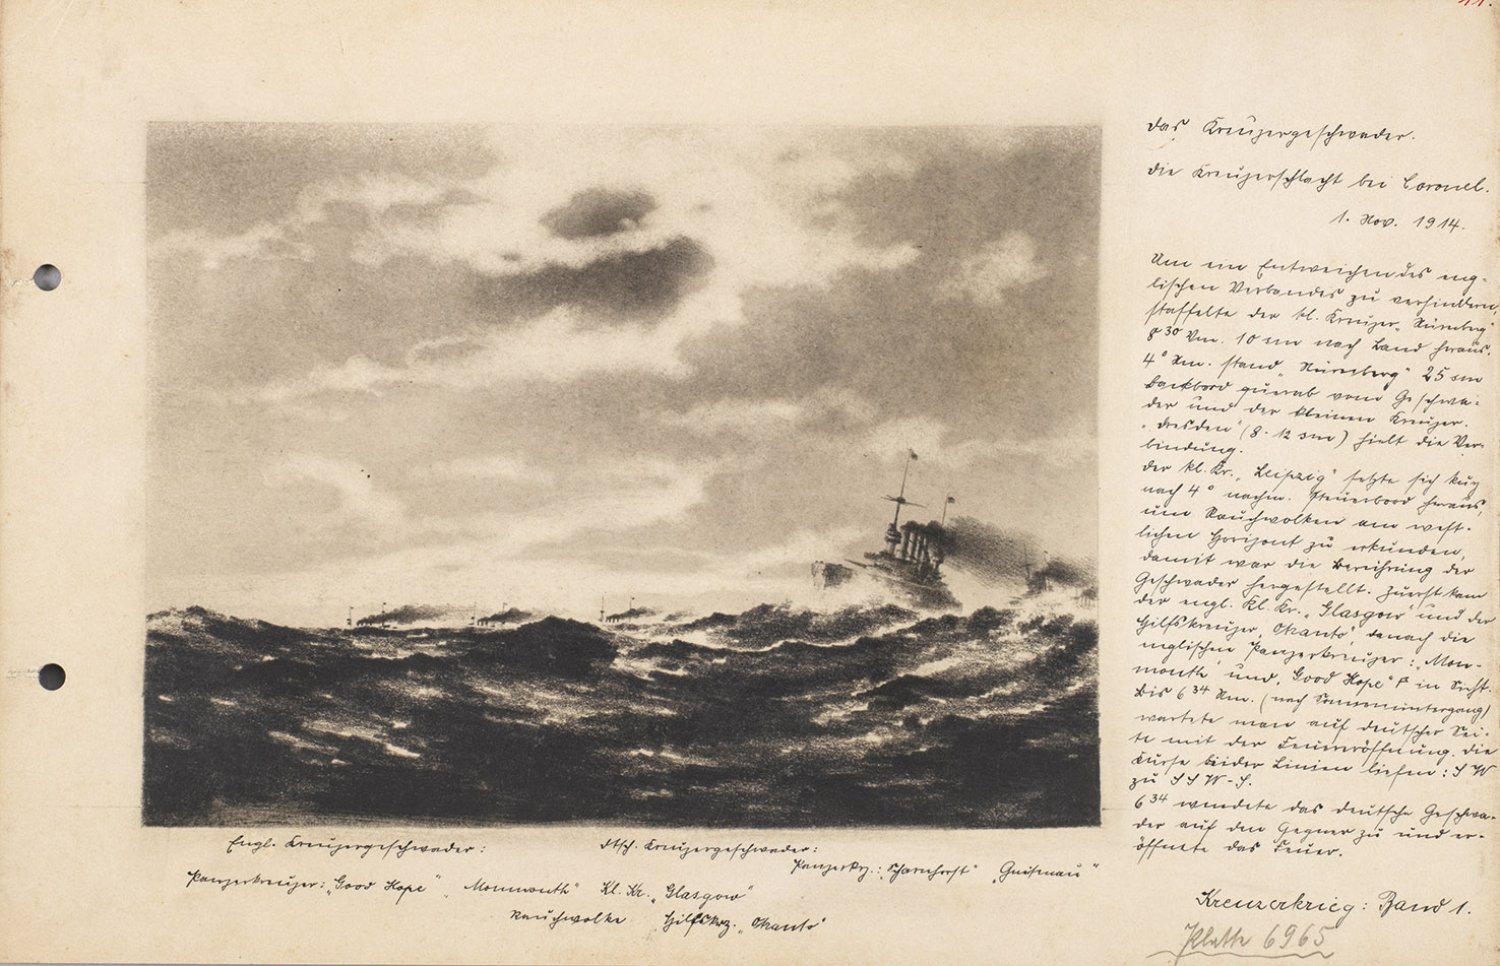 11.
Das Kreuzergeschwader.
Die Kreuzerschlacht bei Coronel.
1. Nov. 1914.
Um ein Entweichen des eng-
lischen Verbandes zu verhindern,
staffelte der kl. Kreuzer „Nürnberg"
8³⁰ Vm. 10 sm nach Land heraus.
4° Nm. stand „Nürnberg" 25 sm
backbord querab vom Geschwa-
der und der kleinen Kreuzer.
„Dresden" (8-12 sm) hielt die Ver-
bindung.
Der kl. Kr. „Leipzig" setzte sich kurz
nach 4° nachm. Steuerbord heraus,
um Rauchwolken am west-
lichen Horizont zu erkunden,
damit war die Berührung der
Geschwader hergestellt. Zuerst kam
der engl. Kl. Kr. „Glasgow" und der
Hilfskreuzer „Otranto" danach die
englischen Panzerkreuzer: „Mon-
mouth" und „Good Hope" in Sicht.
Bis 6³⁴ Nm. (nach Sonnenuntergang)
wartete man auf deutscher Sei-
te mit der Feuereröffnung. Die
Kurse beider Linien liefen: S W
zu S S W-S.
6³⁴ wendete das deutsche Geschwa-
der auf den Gegner zu und er-
öffnete das Feuer.
Engl. Kreuzergeschwader:
Dtsch. Kreuzergeschwader:
Panzerkrz.: „Scharnhorst" „Gneisenau"
Panzerkreuzer: „Good Hope" „Monmouth" Kl. Kr. „Glasgow"
Rauchwolke Hilfskrz. „Otranto"
Kreuzerkrieg: Band 1.
Platte 6965